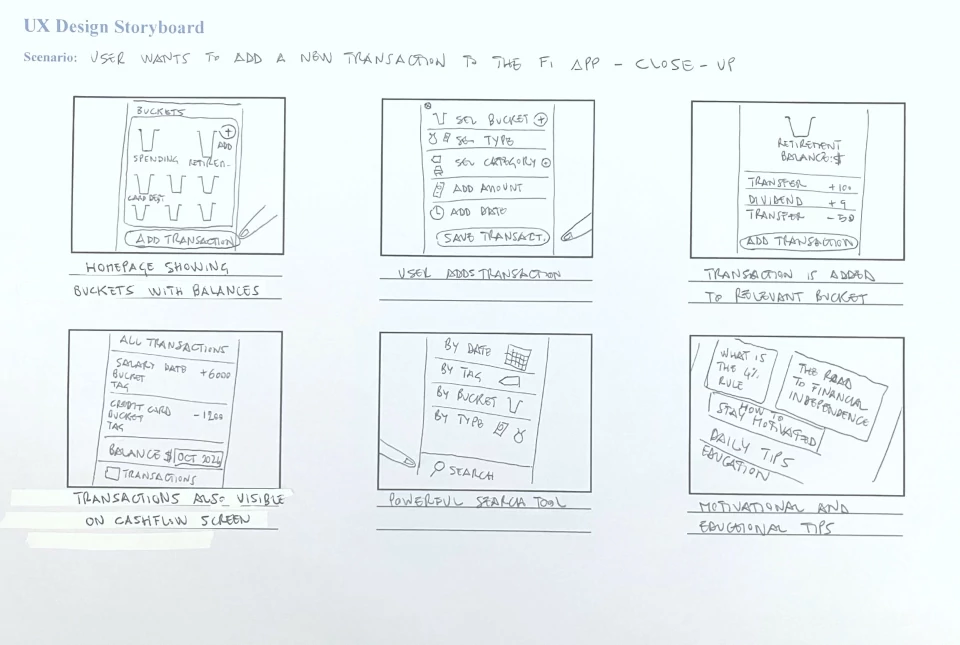 UX Design Storyboard
Scenario: USER WANTS TO ADD A NEW TRANSACTION TO THE FI APP - CLOSE-UP
BUCKETS
+
ADD
SPENDING RETIREM-
CARD DEBT
ADD TRANSACTION
HOMEPAGE SHOWING
BUCKETS WITH BALANCES
SEL BUCKET +
SEL TYPE
SEL CATEGORY
ADD AMOUNT
ADD DATE
SAVE TRANSACT.
USER ADDS TRANSACTION
RETIREMENT
BALANCE: $
TRANSFER +100
DIVIDEND + 9
TRANSFER - 50
ADD TRANSACTION
TRANSACTION IS ADDED
TO RELEVANT BUCKET
ALL TRANSACTIONS
SALARY DATE +6000
BUCKET
TAG
CREDIT CARD -1200
BUCKET
TAG
BALANCE $ OCT 2024
TRANSACTIONS
TRANSACTIONS ALSO VISIBLE
ON CASHFLOW SCREEN
BY DATE
BY TAG
BY BUCKET
BY TYPE
SEARCH
POWERFUL SEARCH TOOL
WHAT IS
THE 4%
RULE
THE ROAD
TO FINANCIAL
INDEPENDENCE
HOW TO
STAY MOTIVATED
DAILY TIPS
EDUCATION
MOTIVATIONAL AND
EDUCATIONAL TIPS